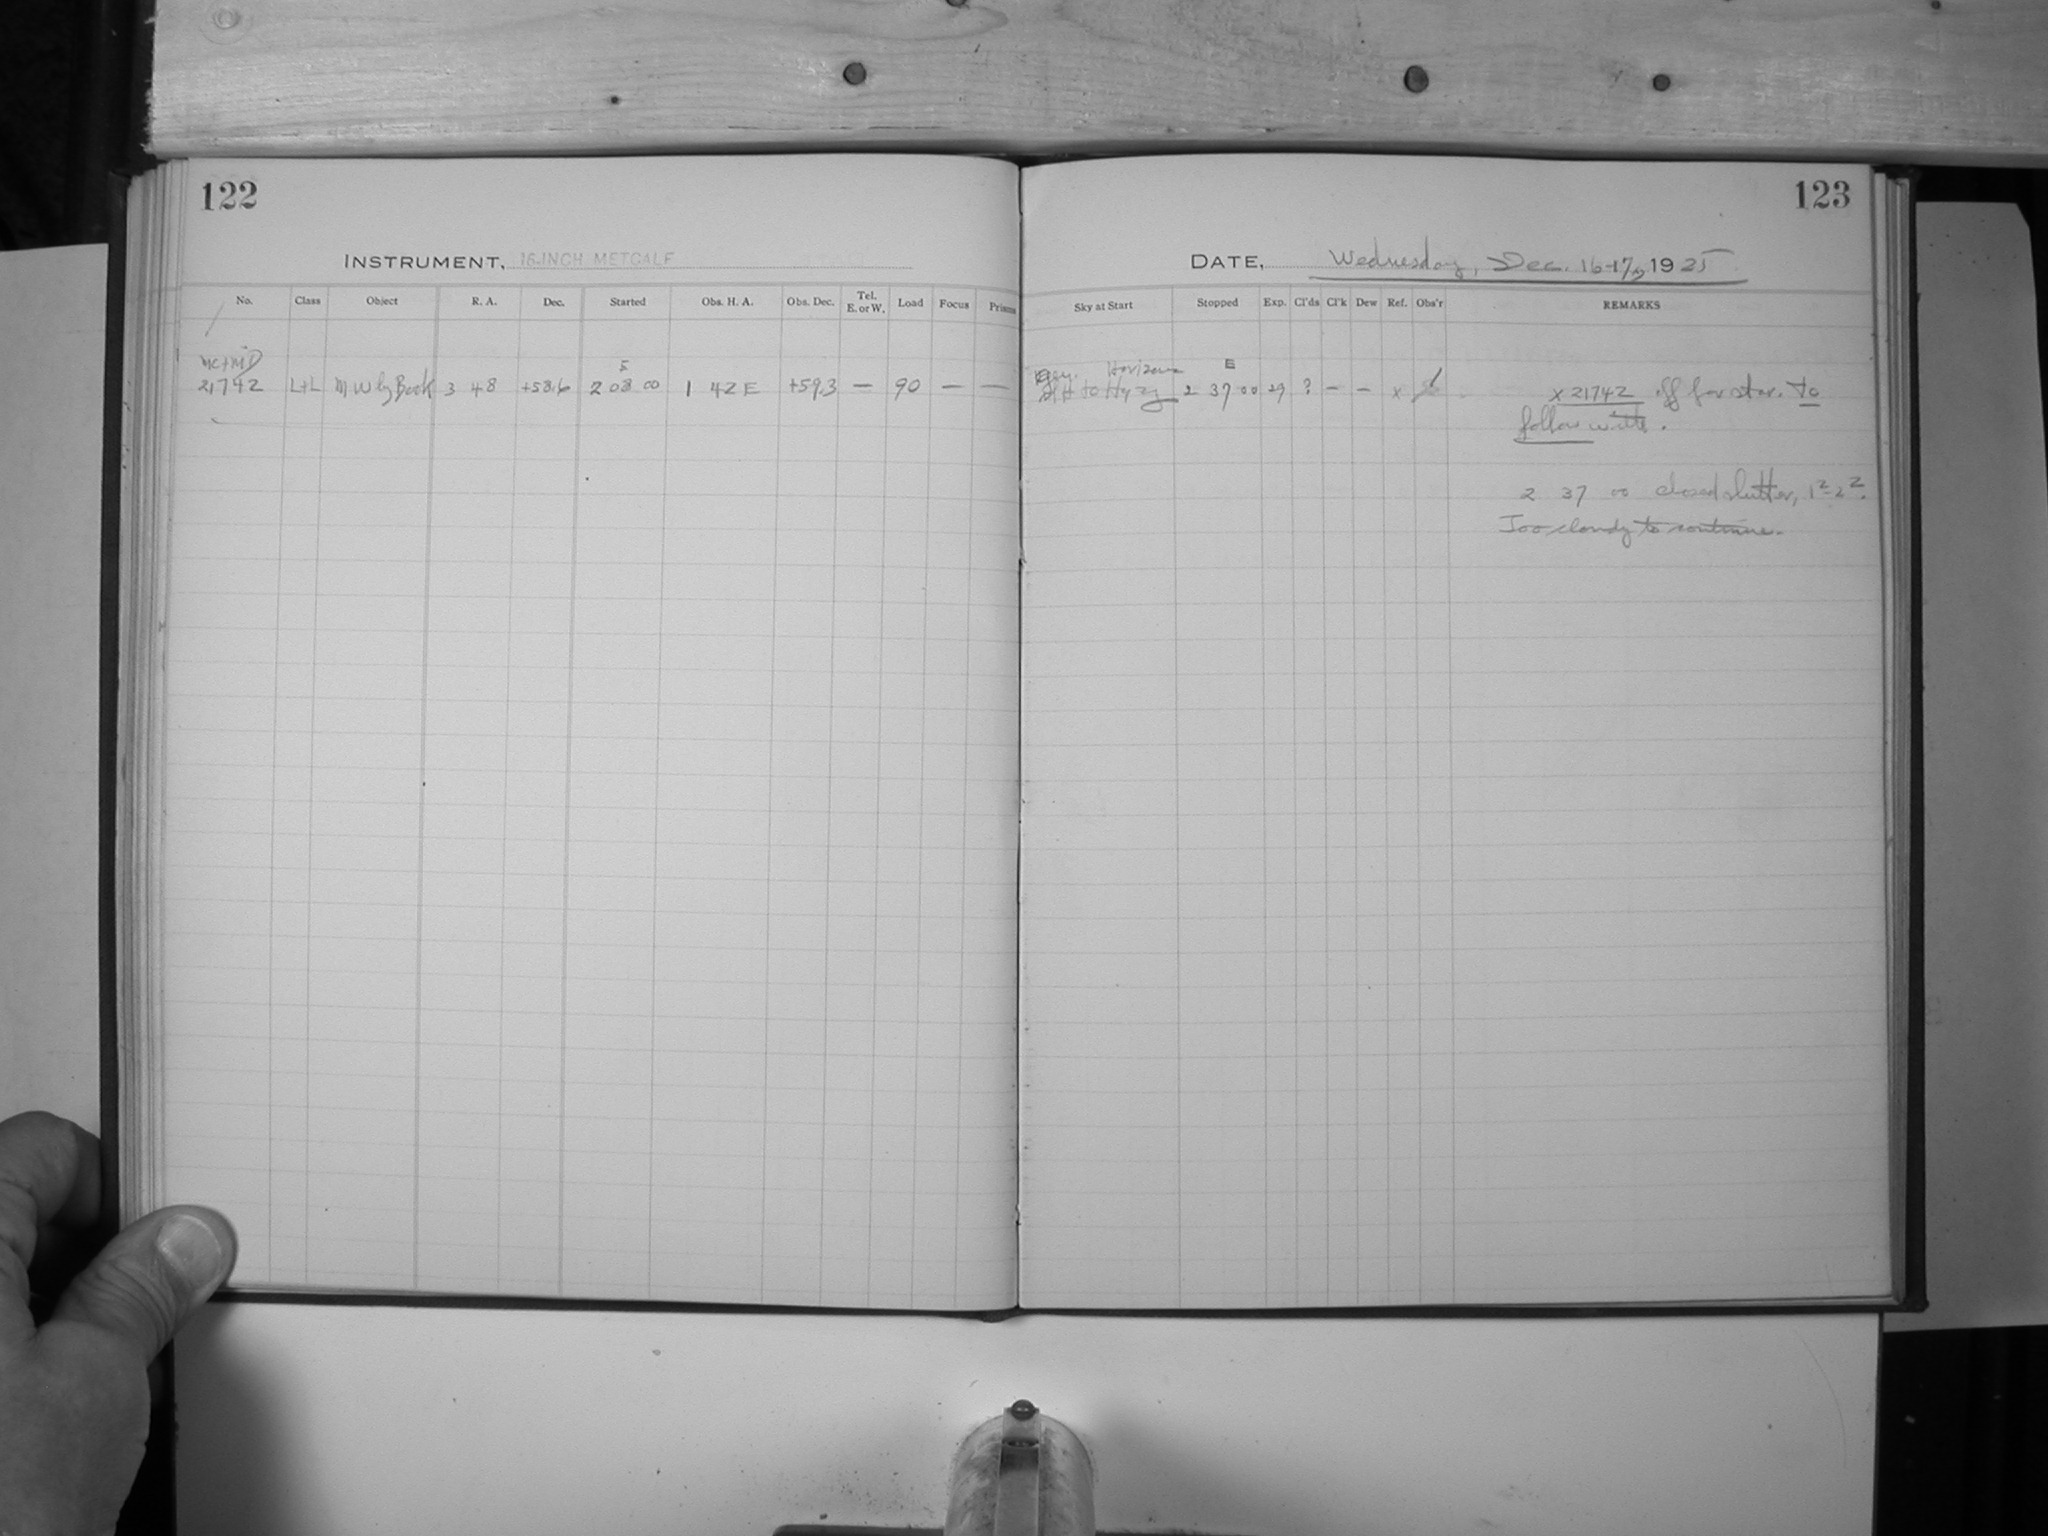 122
INSTRUMENT, 16-INCH METCALF
No. Class Object R. A. Dec. Started Obs. H. A. Obs. Dec. Tel. E. or W. Load Focus Prisms
MC+MD S
21742 L+L M W by Book 3 48 +58.6 2 08 00 1 42 E +59.3 — 90 — —
123
DATE, Wednesday, Dec. 16-17, 1925
Sky at Start Stopped Exp. Cl'ds Cl'k Dew Ref. Obs'r REMARKS
Horizon E
to Hazy 2 37 00 29 ? — — x
x 21742 off for star. to
follow with.
2 37 00 closed shutter,
Too cloudy to continue.